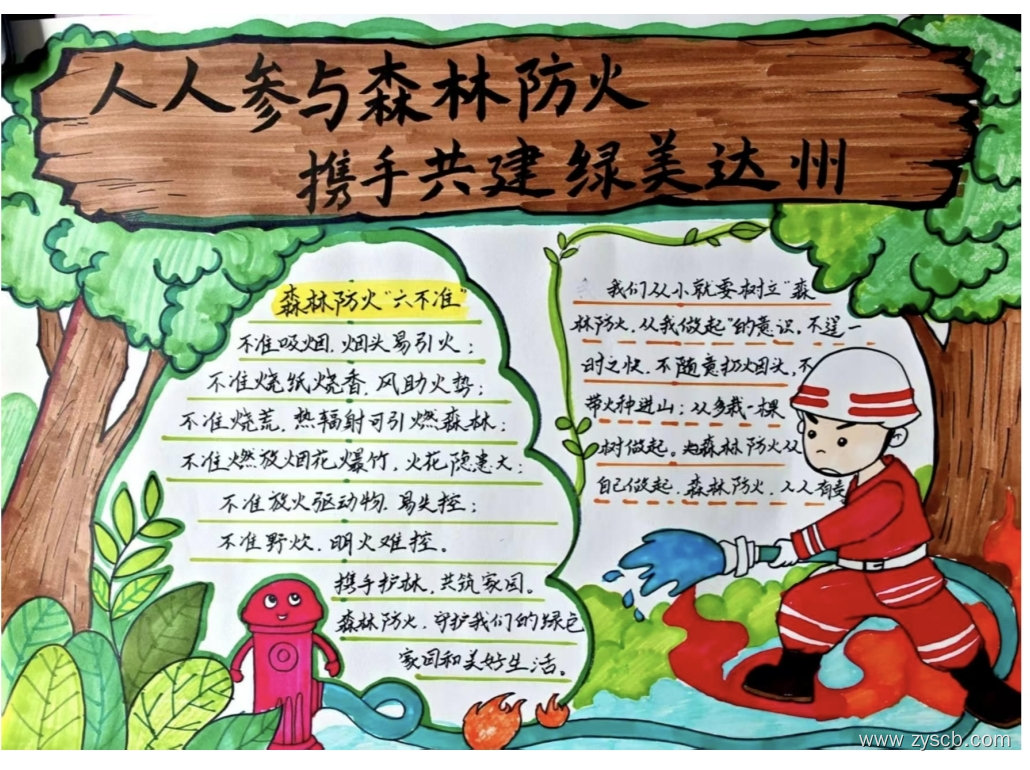 人人参与森林防火
携手共建绿美达州
森林防火“六不准”
不准吸烟,烟头易引火;
不准烧纸烧香,风助火势;
不准烧荒,热辐射可引燃森林;
不准燃放烟花爆竹,火花隐患大;
不准放火驱动物,易失控;
不准野炊,明火难控。
携手护林,共筑家园。
森林防火,守护我们的绿色
家园和美好生活。
我们从小就要树立“森
林防火,从我做起”的意识,不逞一
时之快,不随意扔烟头,不
带火种进山;从多栽一棵
树做起。森林防火从
自己做起,森林防火,人人有
www.zyscb.com